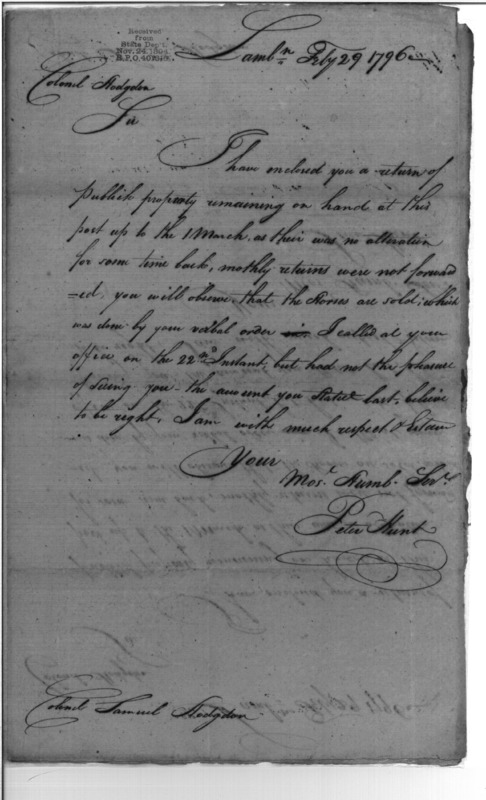 Received
from
State Dep't.
Nov. 24, 1894
R.P.O. 401918.
Lamb.n Feby 29 1796
Colonel Hodgdon
Sir
I have enclosed you a return of
Publick property remaining on hand at this
port up to the 1 March, as their was no alteration
for some time back, mothly returns were not forward
=ed, you will observe that the Horses are sold; which
was done by your verbal order I called at your
office on the 22nd Instant, but had not the pleasure
of Seeing you - the amount you Stated last, believe
to be right, I am with much respect & Esteem
Your
Mos.t Humb. Ser.t
Peter Hunt
Colonel Samuel Hodgdon